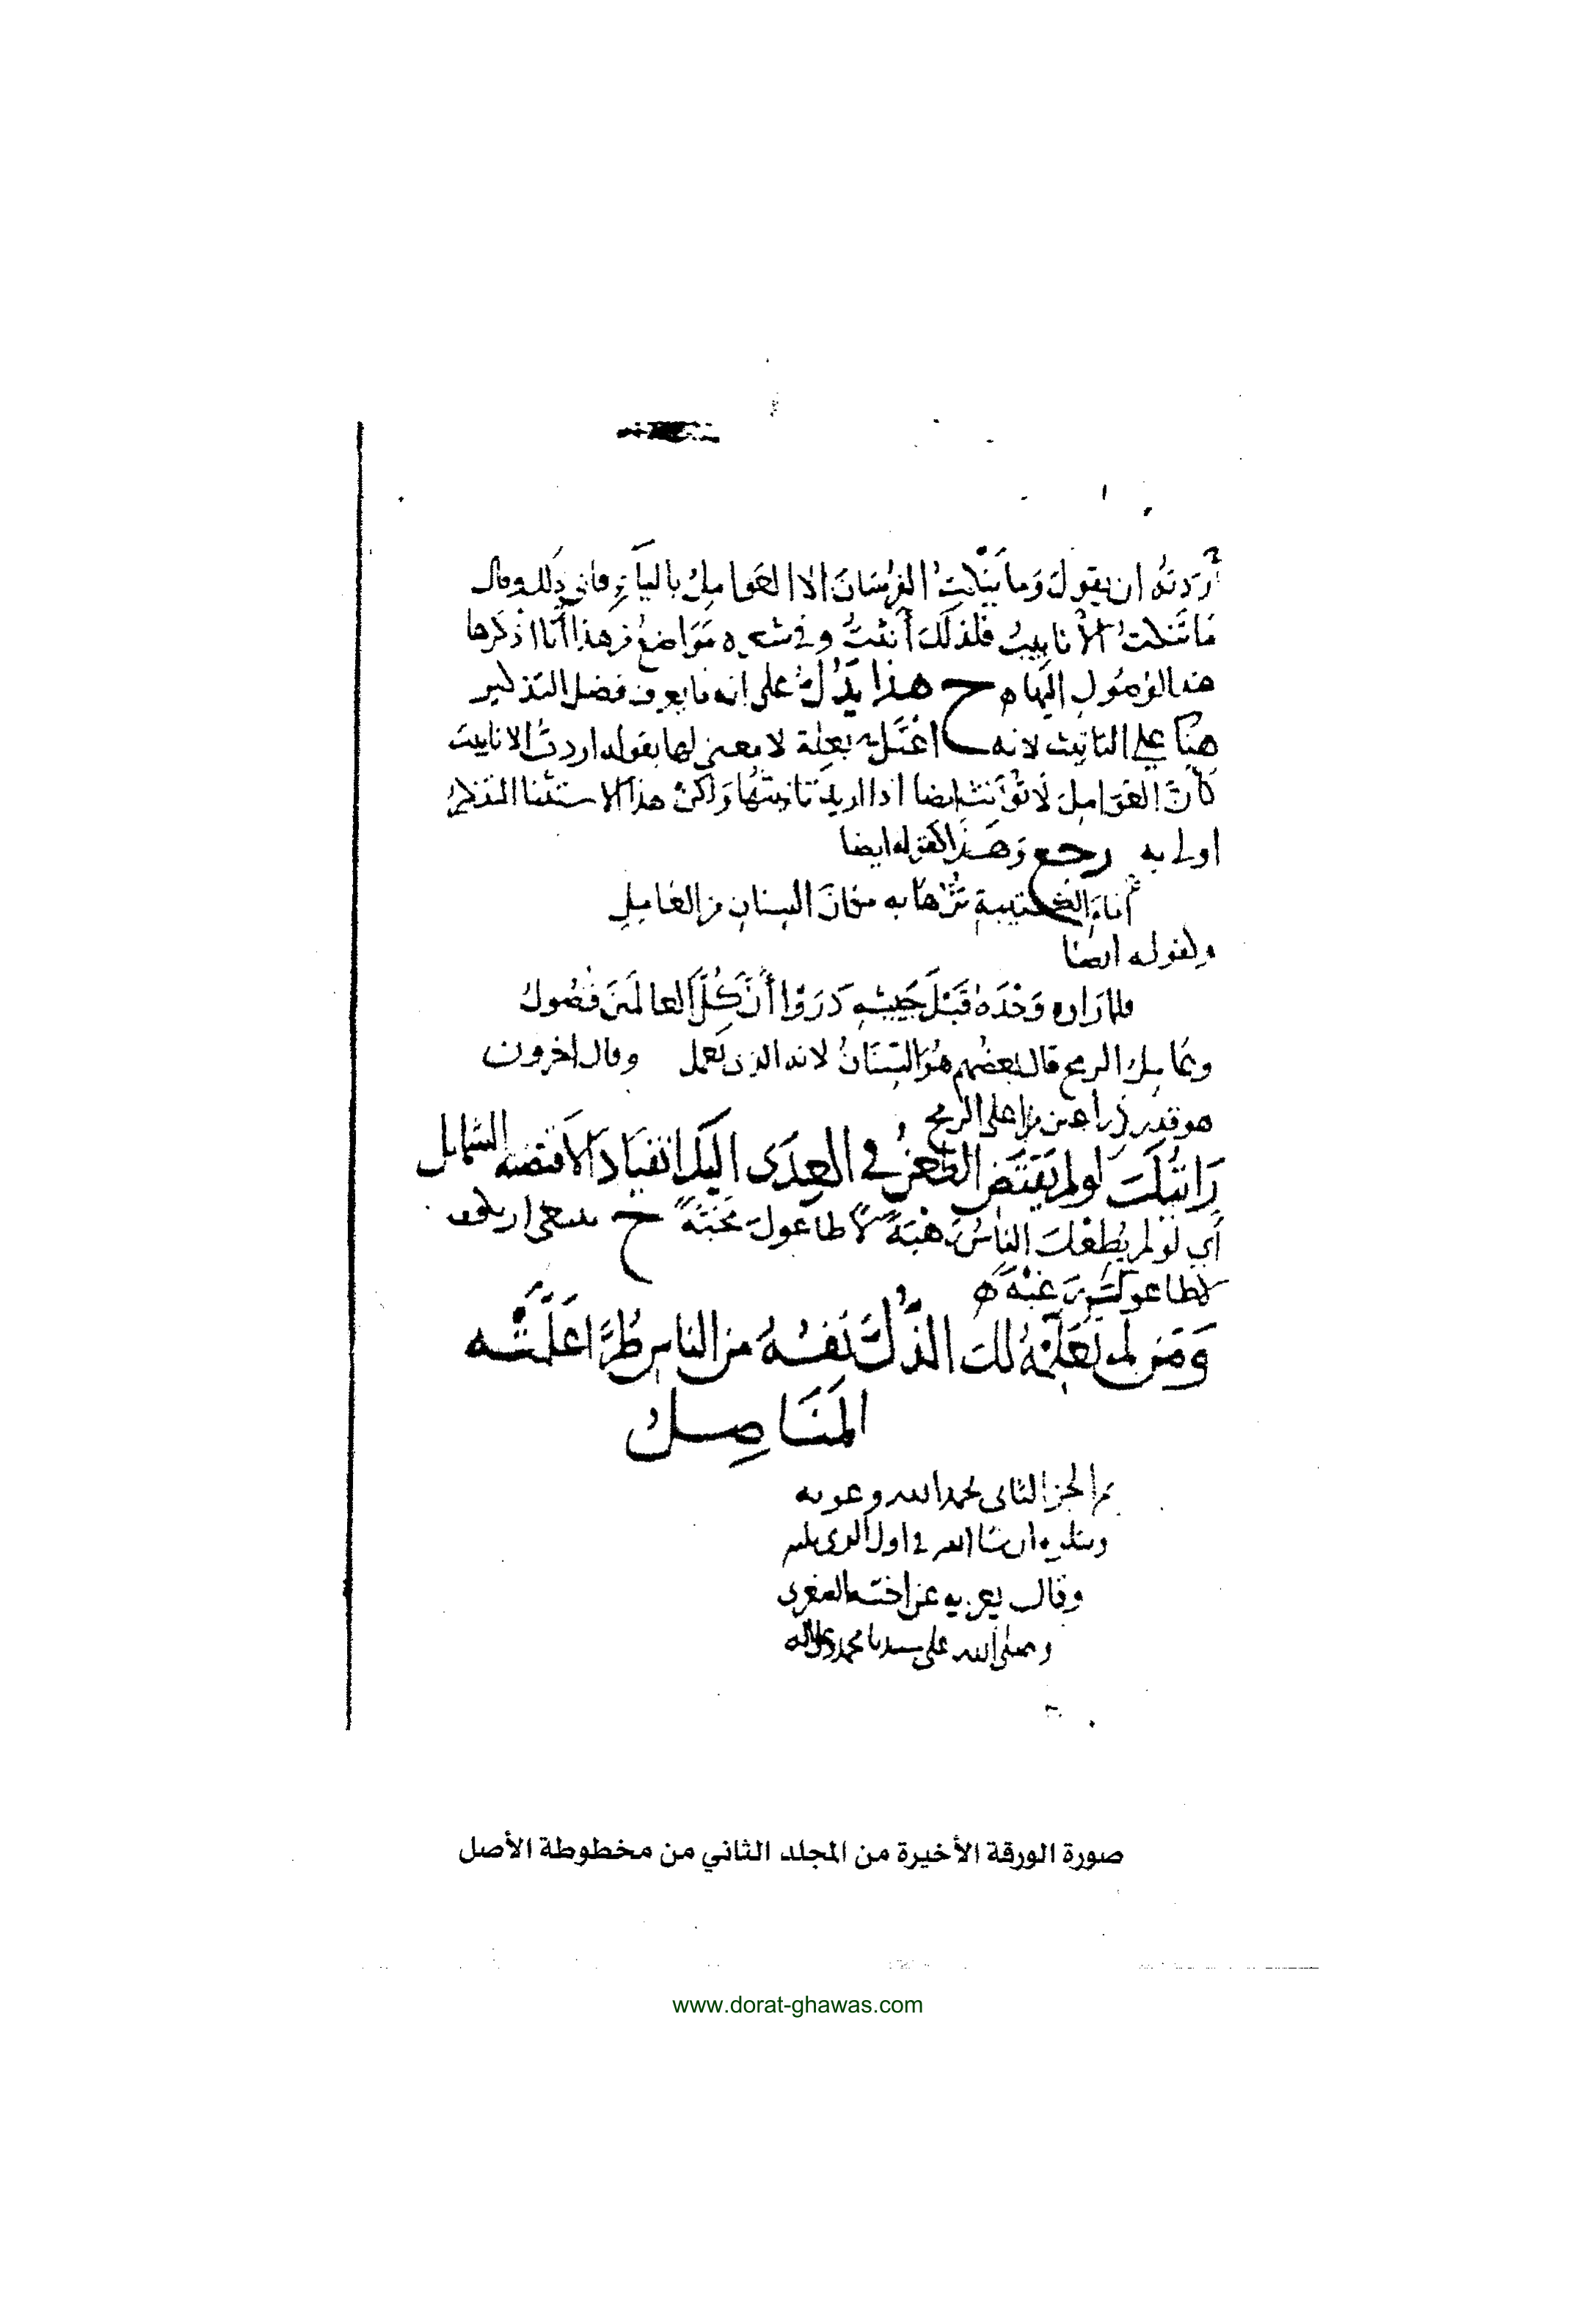 أردته ان يقول وما ينكت الفرسان الا العوامل بالياء فابى ذلك وقال
ما تنكت الأنابيب فلذلك أنثت وفي شعره مواضع من هذا أنا اذكرها
عند الوصول اليها ه ح هذا يدل على انه ما يعرف فضل التذكير
هنا على التانيث لانه اعتل بعلة لا معنى لها بقوله اردت الانابيب
كأن العوامل لا تؤنث ايضا اذا اريد تانيثها ولكن هذا الاستثنا التذكير
اولى به رجع وهذا كقوله ايضا
أمام الكتيبة تزها به مكان السنان من العامل
وكقوله ايضا
فلما رأوه وحده قبل جيشه دروا أن كل العالمين فضول
وعامل الرمح قال بعضهم هو السنان لانه الذي يعمل وقال اخرون
هو قدر ذراعين من اعلى الرمح
رأتك لو لم يقتض الطعن في العدى اليك انقيادا لاقتضته الشمايل
أي لو لم يطعك الناس رهبة لأطاعوك محبة ح ينبغي ان يكون
لاطاعوك رغبة ه
ومن لم تعلمه لك الذل نفسه من الناس طرا علمته
المناصل
تم الجز الثاني بحمد الله وعونه
ويتلوه ان شا الله في اول الذي يليه
وقال يعزيه عن اخته الصغرى
وصلى الله على سيدنا محمد وعلى اله
صورة الورقة الأخيرة من المجلد الثاني من مخطوطة الأصل
www.dorat-ghawas.com